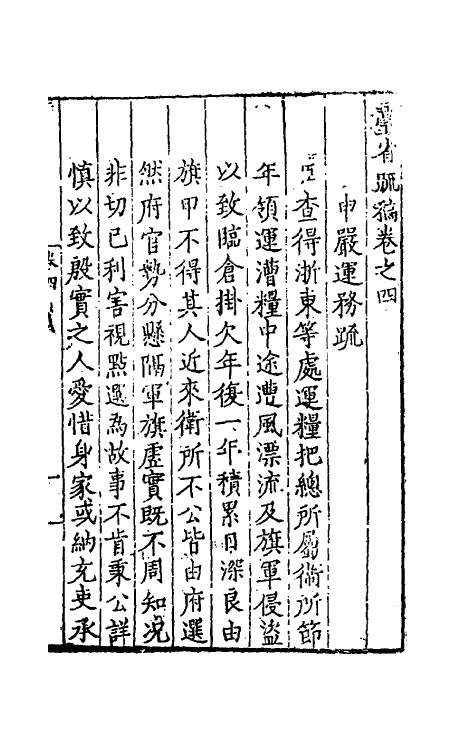 臺省疏稿卷之四
申嚴運務疏
查得浙東等處運糧把總所屬衛所節
年領運漕糧中途遭風漂流及旗軍侵盜
以致臨倉掛欠年復一年積累日深良由
旗甲不得其人近來衛所不公皆由府選
然府官勢分懸隔軍旗虛實既不周知况
非切己利害視點選爲故事不肯秉公詳
慎以致殷實之人愛惜身家或納充吏承